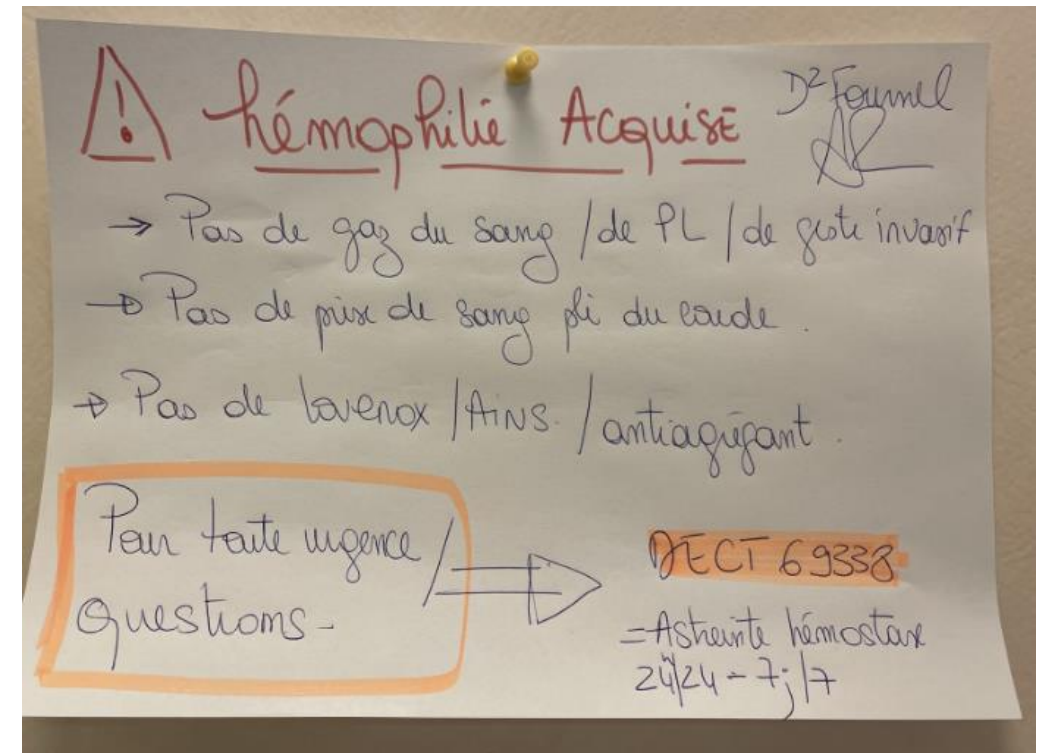 ! hémophilie Acquise
Dr Fournel
→ Pas de gaz du sang / de PL / de geste invasif
→ Pas de prise de sang pli du coude.
→ Pas de lovenox / AiNS. / antiagrégant.
Pour toute urgence /
questions -
DECT 69338
= Astreinte hémostase
24h/24 - 7j/7